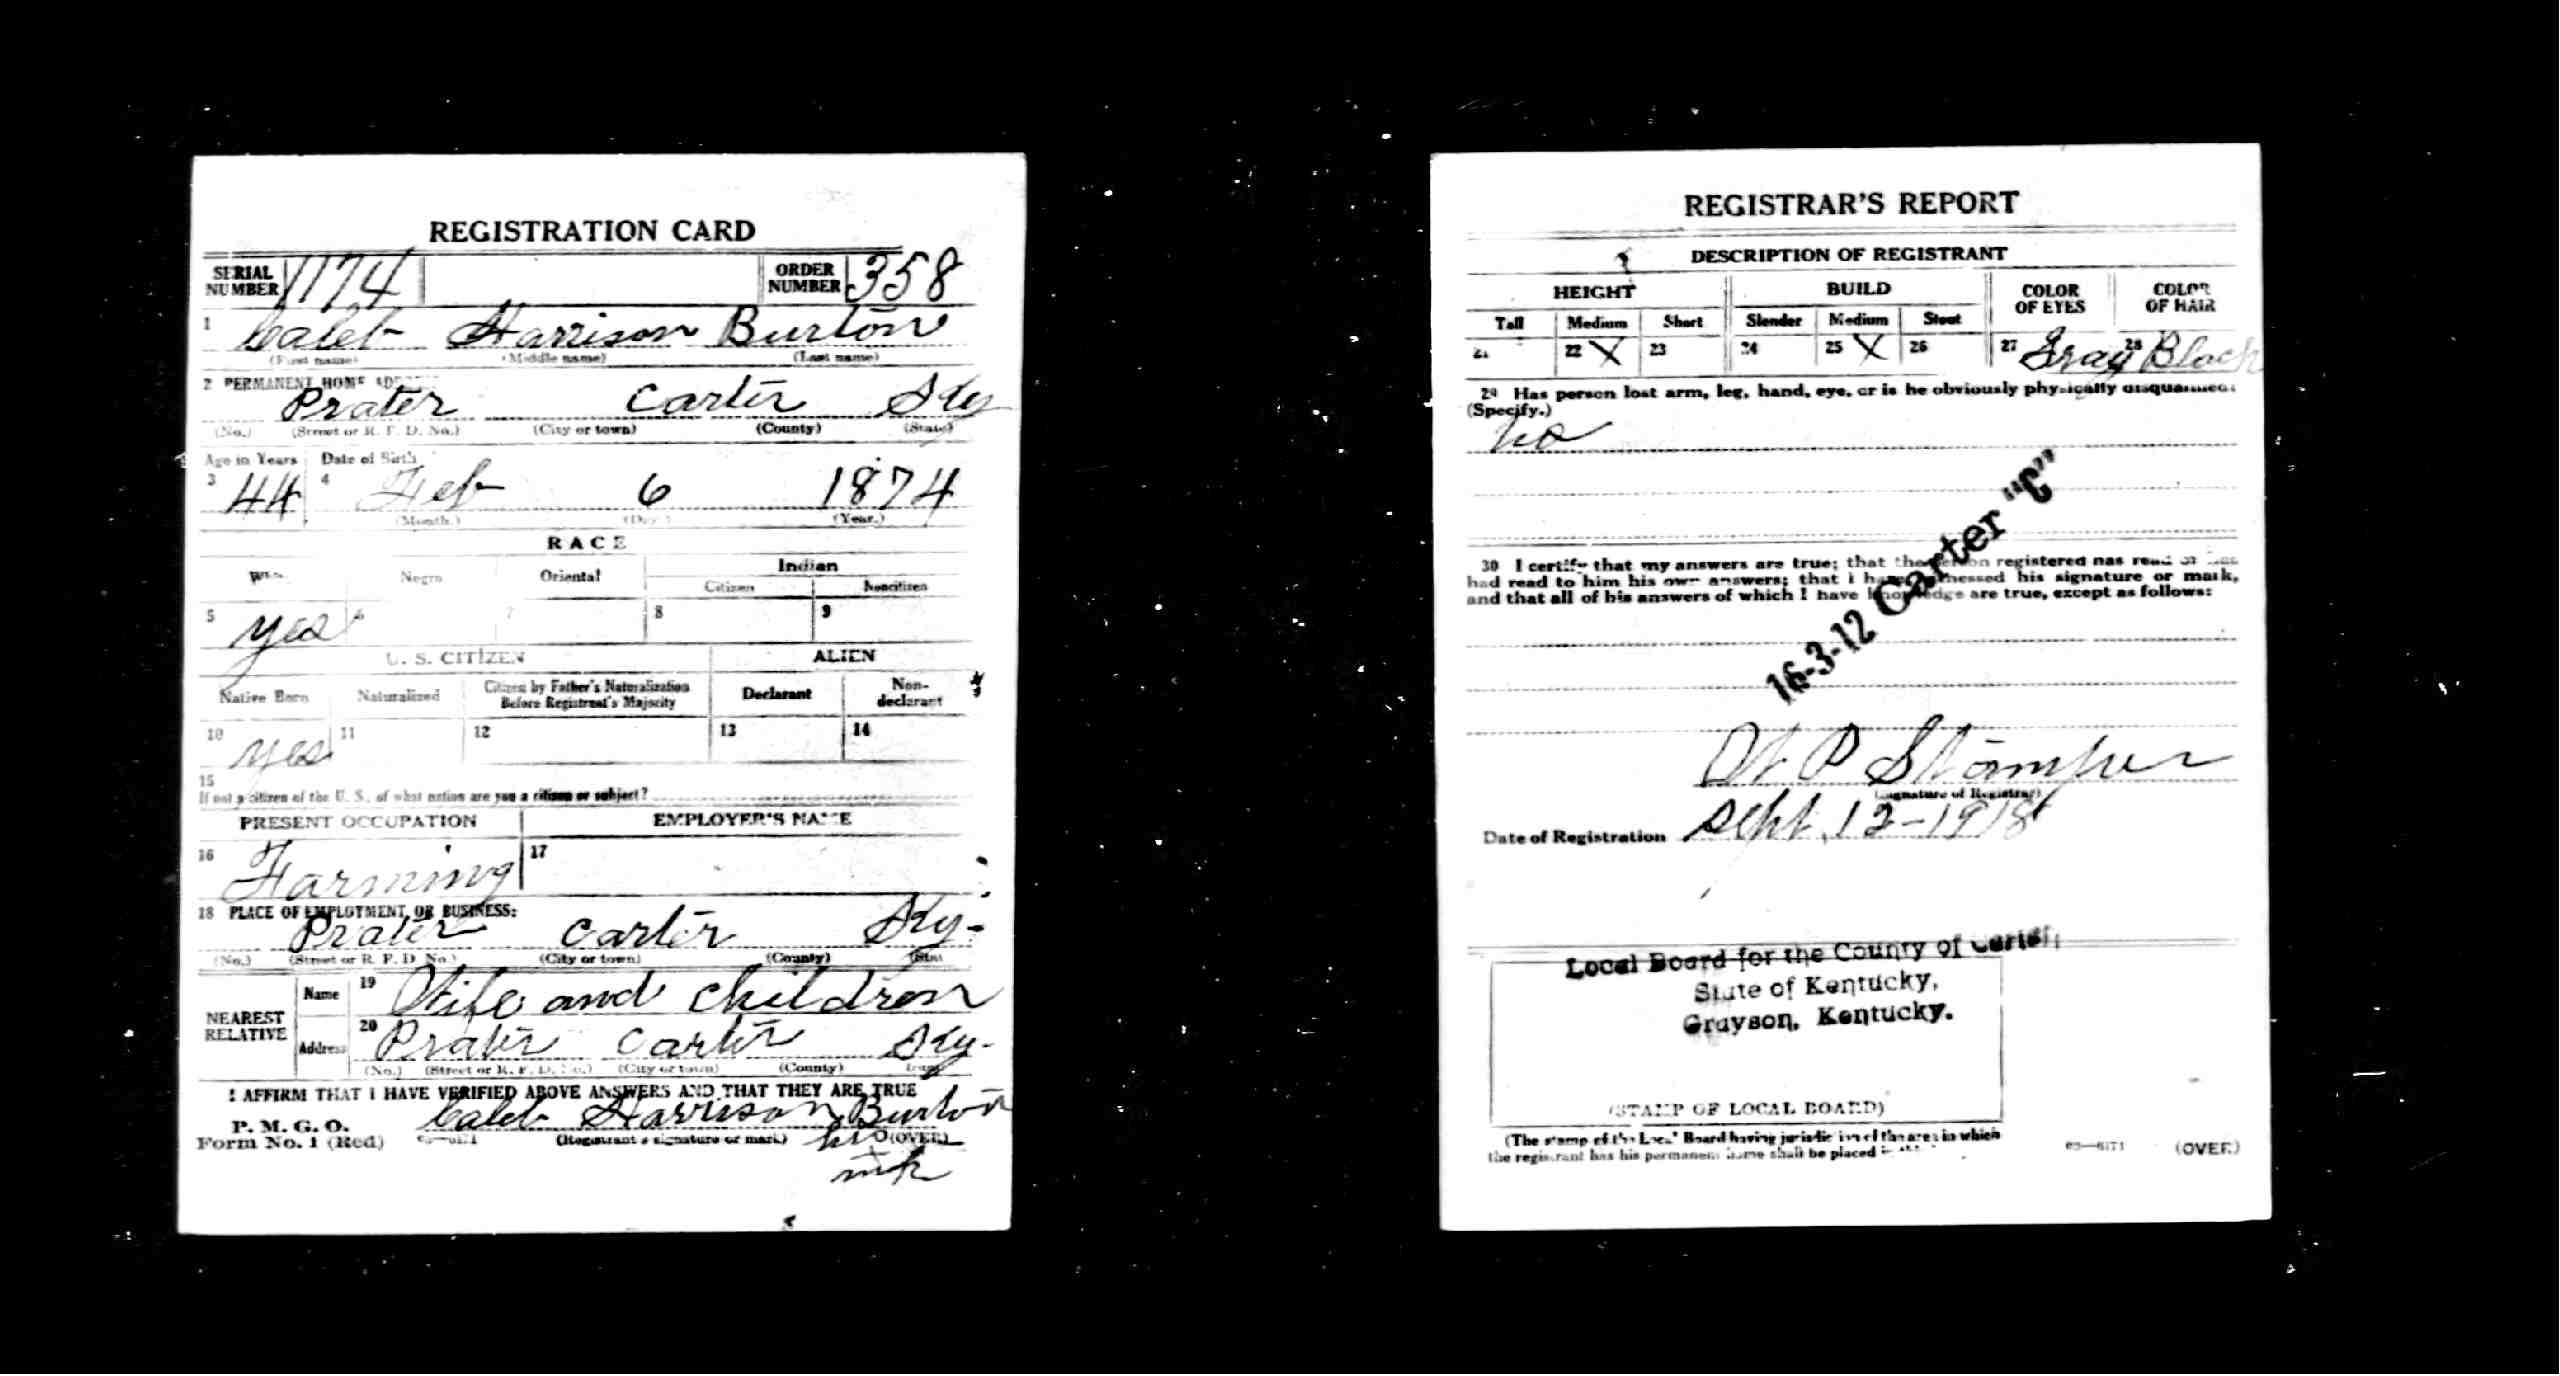 REGISTRATION CARD
SERIAL NUMBER 1174 ORDER NUMBER 358
1 Caleb Harrison Burton
(First name) (Middle name) (Last name)
2 PERMANENT HOME
Prater Carter Ky
(No.) (Street or R. F. D. No.) (City or town) (County) (State)
Age in Years Date of Birth
3 44 4 Feb 6 1874
(Month.) (Day.) (Year.)
RACE
Negro Oriental Indian
Citizen Noncitizen
5 Yes 6 7 8 9
U. S. CITIZEN ALIEN
Native Born Naturalized Citizen by Father's Naturalization Before Registrant's Majority Declarant Non-declarant
10 Yes 11 12 13 14
15
If not a citizen of the U. S., of what nation are you a citizen or subject?
PRESENT OCCUPATION EMPLOYER'S NAME
16 Farming 17
18 PLACE OF EMPLOYMENT OR BUSINESS:
Prater Carter Ky.
(No.) (Street or R. F. D. No.) (City or town) (County)
NEAREST RELATIVE Name 19 Wife and children
Address 20 Prater Carter Ky.
(No.) (Street or R. F. D. No.) (City or town) (County)
I AFFIRM THAT I HAVE VERIFIED ABOVE ANSWERS AND THAT THEY ARE TRUE
P. M. G. O.
Form No. 1 (Red)
Caleb Harrison Burton
(Registrant's signature or mark) (OVER)
his
x
mk
REGISTRAR'S REPORT
DESCRIPTION OF REGISTRANT
HEIGHT BUILD COLOR OF EYES COLOR OF HAIR
Tall Medium Short Slender Medium Stout
21 22 X 23 24 25 X 26 27 Gray 28 Black
29 Has person lost arm, leg, hand, eye, or is he obviously physically disqualified?
(Specify.)
no
30 I certify that my answers are true; that the person registered has read or has
had read to him his own answers; that I have witnessed his signature or mark,
and that all of his answers of which I have knowledge are true, except as follows:
16-3-12 Carter "C"
P Stamper
(Signature of Registrar)
Date of Registration Sept, 12-1918
Local Board for the County of Carter,
State of Kentucky,
Grayson, Kentucky.
(STAMP OF LOCAL BOARD)
(The stamp of the Local Board having jurisdiction of the area in which
the registrant has his permanent home shall be placed in
03—6171 (OVER)